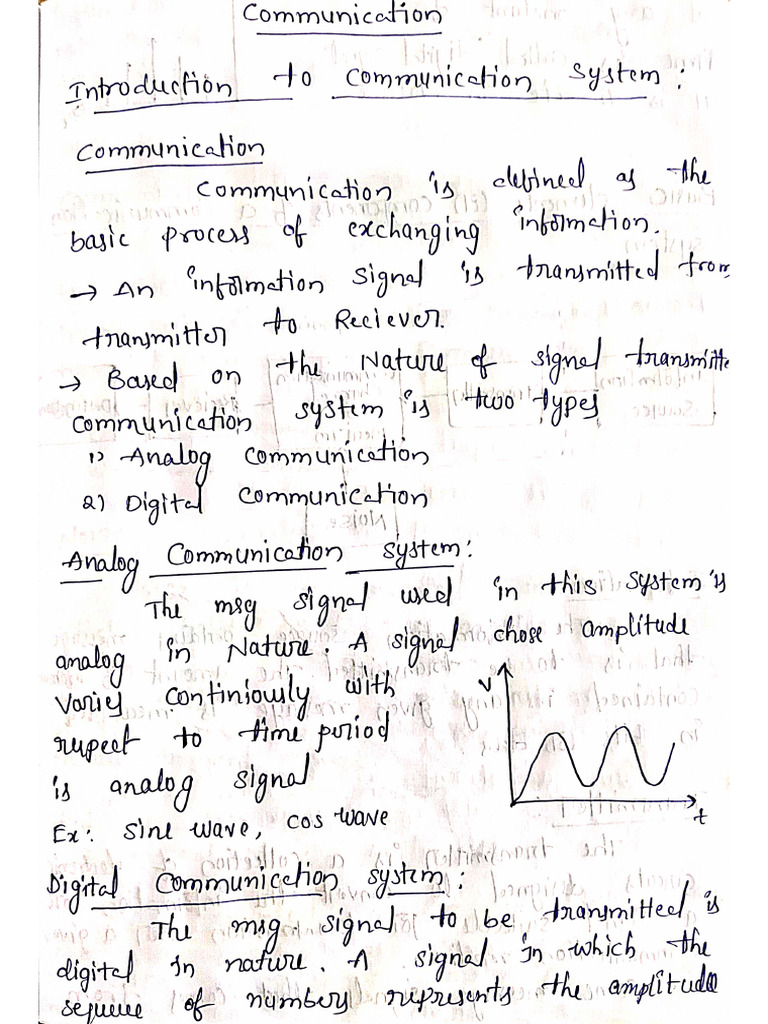 Communication
Introduction to Communication System:
Communication
Communication is defined as the
basic process of exchanging information.
→ An information signal is transmitted from
transmitter to Reciever.
→ Based on the Nature of signal transmitte
Communication system is two types
1) Analog Communication
2) Digital Communication
Analog Communication system:
The msg signal used in this system is
analog in Nature. A signal chose amplitude
Varies Continiously with
respect to time period
is analog signal
V
t
Ex: Sine wave, cos wave
Digital Communication system:
The msg signal to be transmitted is
digital in nature. A signal in which the
sequence of numbers represents the amplitude